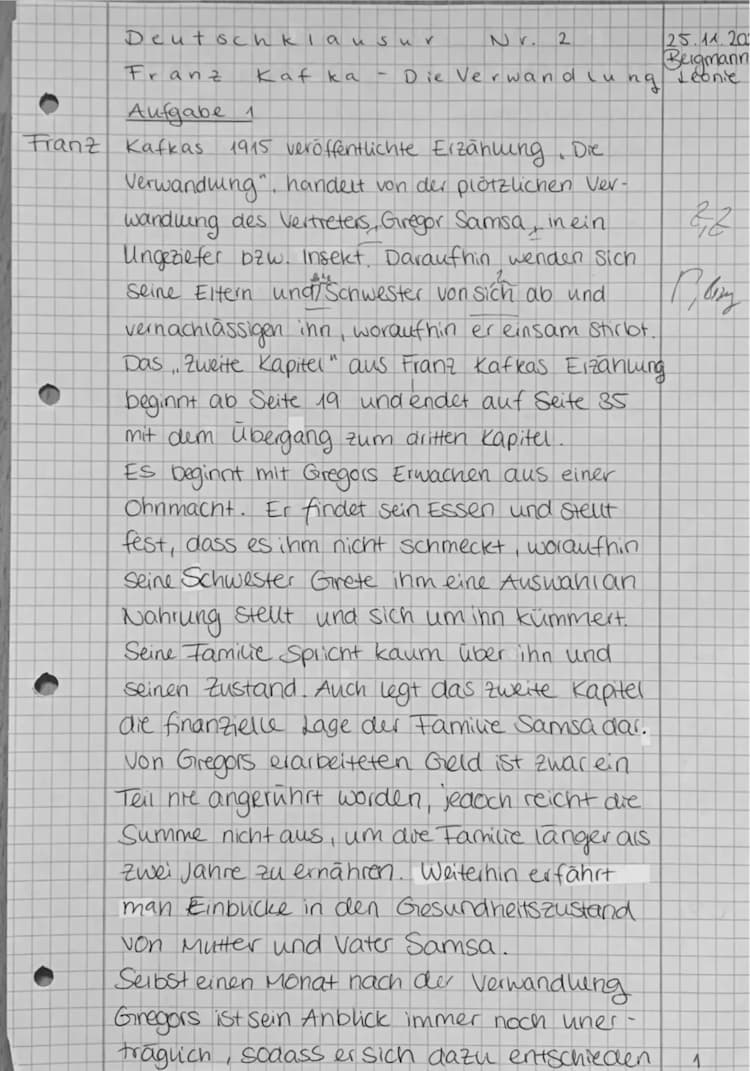 Deutschklausur Nr. 2 25.11.20
Franz Kafka - Die Verwandlung Bergmann Leonie
Aufgabe 1
Franz Kafkas 1915 veröffentlichte Erzählung „Die
Verwandlung", handelt von der plötzlichen Ver-
wandlung des Vertreters, Gregor Samsa, in ein
Ungeziefer bzw. Insekt. Daraufhin wenden sich
seine Eltern und Schwester von sich ab und
vernachlässigen ihn, woraufhin er einsam stirbt.
Das „zweite Kapitel" aus Franz Kafkas Erzählung
beginnt ab Seite 19 und endet auf Seite 35
mit dem Übergang zum dritten Kapitel.
Es beginnt mit Gregors Erwachen aus einer
Ohnmacht. Er findet sein Essen und stellt
fest, dass es ihm nicht schmeckt, woraufhin
seine Schwester Grete ihm eine Auswahl an
Nahrung stellt und sich um ihn kümmert.
Seine Familie spricht kaum über ihn und
seinen Zustand. Auch legt das zweite Kapitel
die finanzielle Lage der Familie Samsa dar.
Von Gregors erarbeiteten Geld ist zwar ein
Teil nie angerührt worden, jedoch reicht die
Summe nicht aus, um die Familie länger als
zwei Jahre zu ernähren. Weiterhin erfährt
man Einblicke in den Gesundheitszustand
von Mutter und Vater Samsa.
Selbst einen Monat nach der Verwandlung
Gregors ist sein Anblick immer noch uner-
träglich, sodass er sich dazu entschieden 1